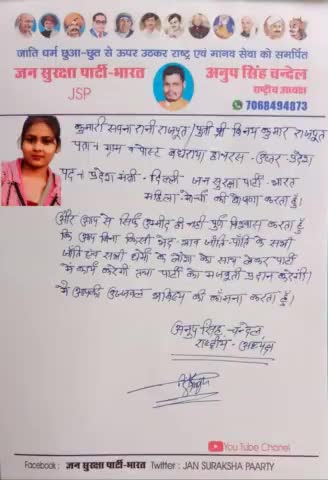 जाति धर्म छुआ-छुत से ऊपर उठकर राष्ट्र एवं मानव सेवा को समर्पित
जन सुरक्षा पार्टी-भारत
JSP
अनुप सिंह चन्देल
राष्ट्रीय अध्यक्ष
7068494873
कुमारी सपना रानी राजपूत / पुत्री श्री विनय कुमार राजपूत
पता = ग्राम व पोस्ट हाथरस - उत्तर प्रदेश
पद = प्रदेश मंत्री - दिल्ली - जन सुरक्षा पार्टी - भारत
महिला - मोर्चा की घोषणा करता हूँ।
और आप से सिर्फ उम्मीद ही नहीं पूर्ण विश्वास करता हूँ
कि आप बिना किसी भेद भाव जाति-पाति के सभी
जाति एवं सभी धर्मो के लोगो को साथ लेकर पार्टी
में कार्य करेगी तथा पार्टी को मजबुती प्रदान करेगी।
मैं आपकी उज्जवल भविष्य की कामना करता हूँ।
अनुप सिंह चन्देल
राष्ट्रीय - अध्यक्ष
You Tube Chanel
Facebook : जन सुरक्षा पार्टी-भारत Twitter : JAN SURAKSHA PAARTY